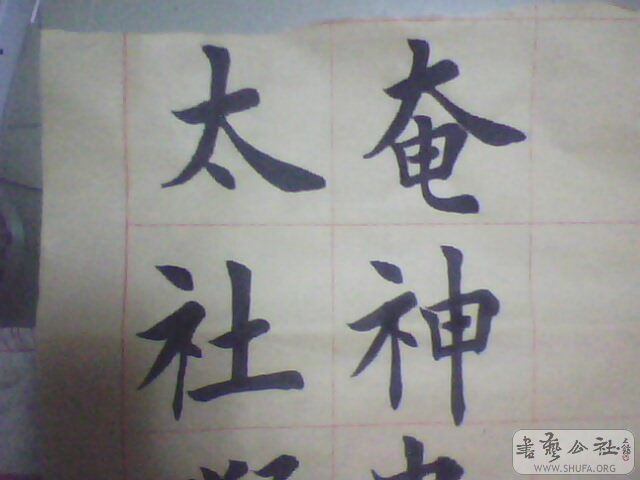 奄神
太社
書藝公社
WWW.SHUFA.ORG